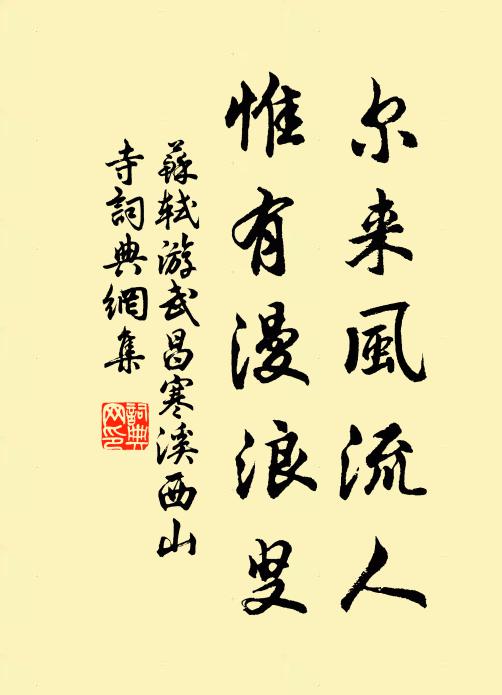 尔来風流人
惟有漫浪叟
蘇軾游武昌寒溪西山
寺詞典網集
詞典网印